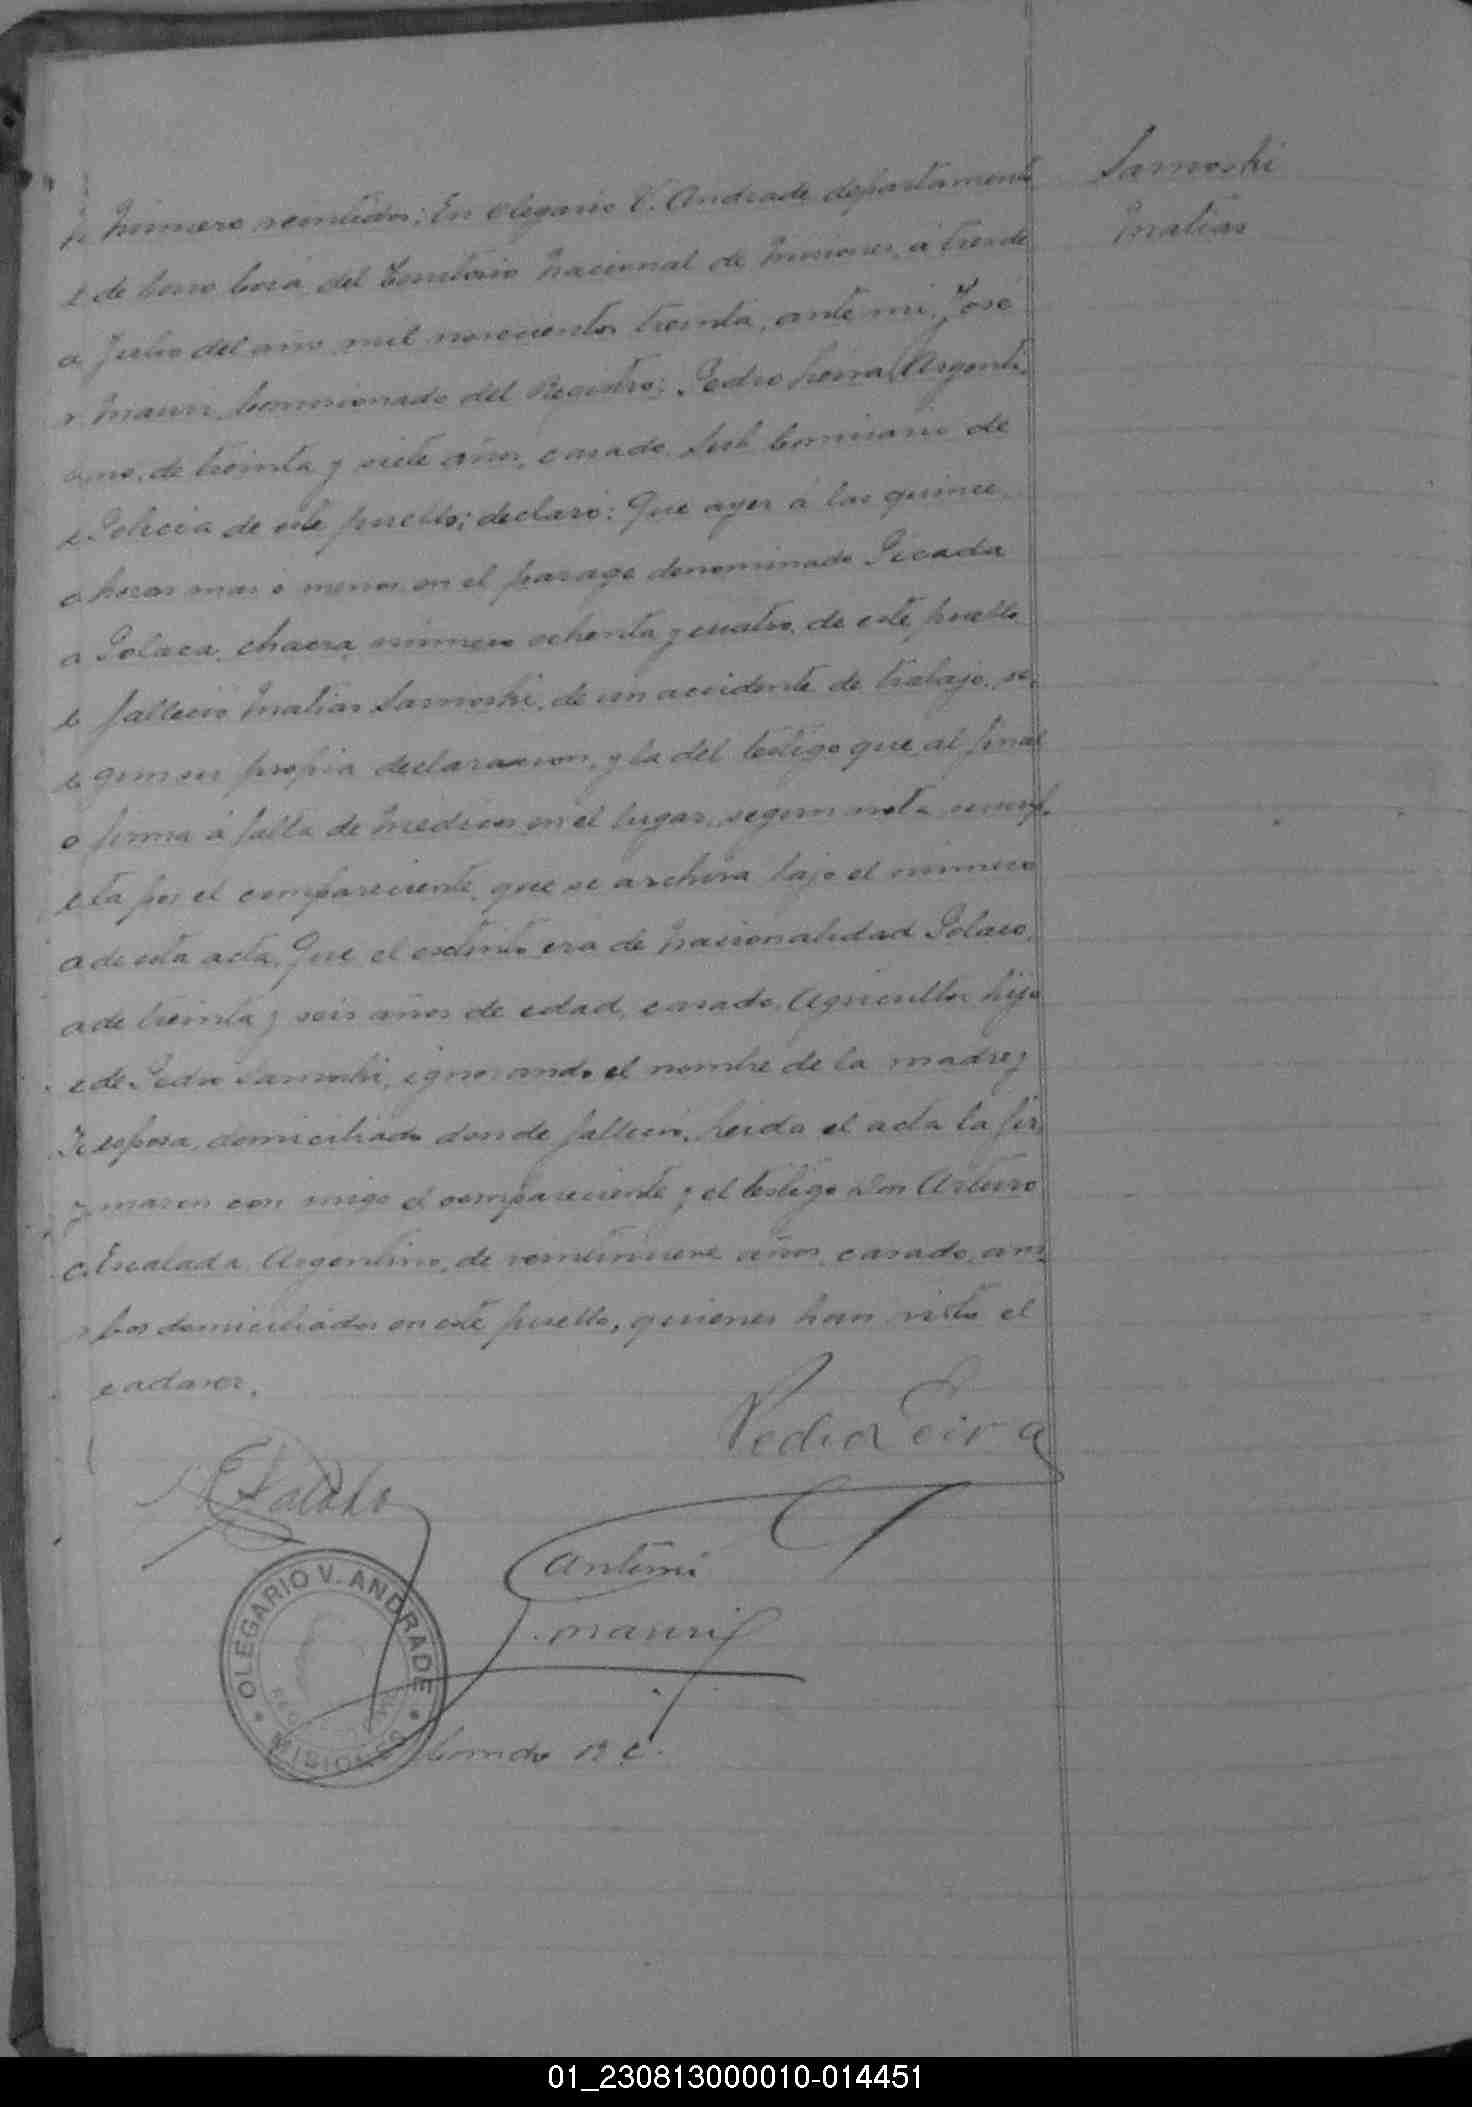 Samoski
Matias
Número veintidos: En Olegario V. Andrade departamento
de Cerro Corá del Territorio Nacional de Misiones, á tres de
Julio del año mil novecientos treinta, ante mi, José
Mauri, Comisionado del Registro; Pedro Leiva, Argenti-
no, de treinta y siete años, casado, Sub Comisario de
Policia de este pueblo; declaró: Que ayer á las quince
horas mas o menos en el parage denominado Picada
Polaca, chacra número ochenta y cuatro, de este pueblo
falleció Matias Samoski, de un accidente de trabajo, se-
gun su propia declaracion, y la del testigo que al final
firma á falta de Médicos en el lugar, segun nota
ta por el compareciente, que se archiva bajo el número
de esta acta. Que el extinto era de nacionalidad Polaco,
de treinta y seis años de edad, casado, Agricultor, hijo
de Pedro Samoski, ignorando el nombre de la madre y
esposa, domiciliado donde falleció. Leida el acta la fir-
maron con migo el compareciente y el testigo Don Arturo
Escalada Argentino, de veintinueve años, casado, am-
bos domiciliados en este pueblo, quienes han visto el
cadaver.
Pedro Leiva
Escalada
Ante mi
J. Mauri
OLEGARIO V. ANDRADE
MISIONES
Comdo R. C.
01_230813000010-014451